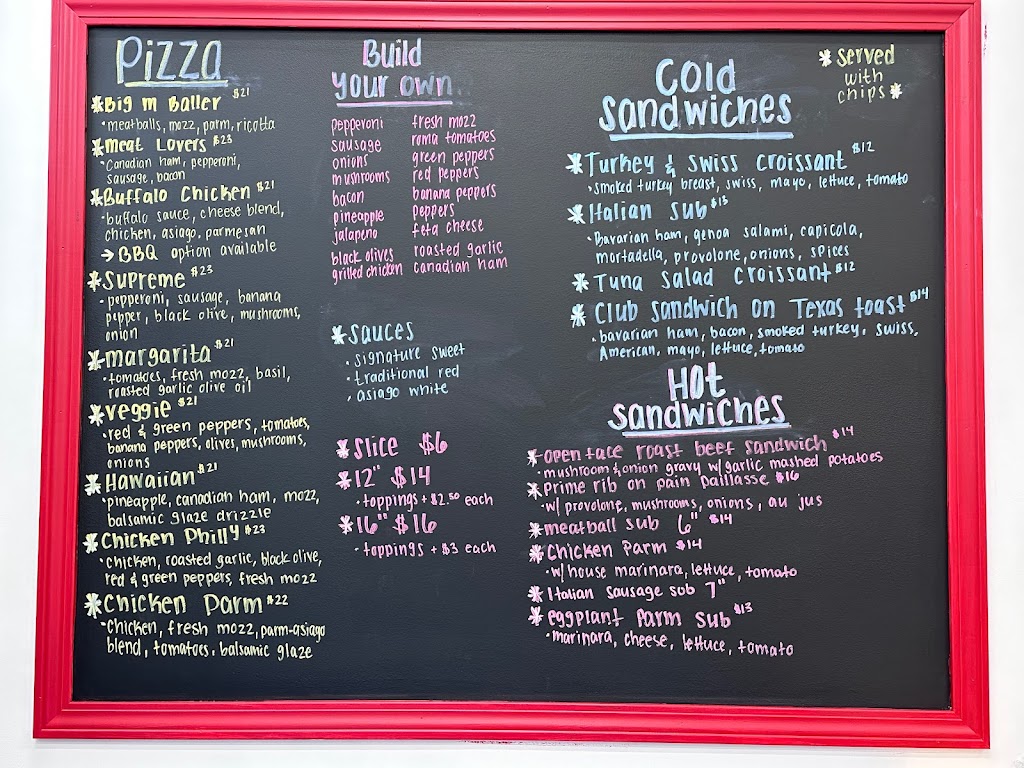 Pizza
*Big M Baller $21
•meatballs, mozz, parm, ricotta
*Meat Lovers $23
•Canadian ham, pepperoni,
sausage, bacon
*Buffalo Chicken $21
•buffalo sauce, cheese blend,
chicken, asiago, parmesan
→ BBQ option available
*Supreme $23
•pepperoni, sausage, banana
pepper, black olive, mushrooms,
onion
*margarita $21
•tomatoes, fresh mozz, basil,
roasted garlic olive oil
*veggie $21
•red & green peppers, tomatoes,
banana peppers, olives, mushrooms,
onions
*Hawaiian $21
•pineapple, canadian ham, mozz,
balsamic glaze drizzle
*Chicken Philly $23
•chicken, roasted garlic, black olive,
red & green peppers, fresh mozz
*Chicken Parm $22
•Chicken, fresh mozz, parm-asiago
blend, tomatoes, balsamic glaze
Build
your own
pepperoni fresh mozz
sausage roma tomatoes
onions green peppers
mushrooms red peppers
bacon banana peppers
pineapple peppers
jalapeno feta cheese
black olives roasted garlic
grilled chicken canadian ham
*sauces
•signature sweet
•traditional red
•asiago white
*slice $6
*12" $14
•toppings + $2.50 each
*16" $16
•toppings + $3 each
Cold
sandwiches
*served
with
chips*
*Turkey & swiss croissant $12
•smoked turkey breast, swiss, mayo, lettuce, tomato
*Italian sub $13
•Bavarian ham, genoa salami, capicola,
mortadella, provolone, onions, spices
*Tuna salad croissant $12
*Club sandwich on Texas toast $14
•bavarian ham, bacon, smoked turkey, swiss,
American, mayo, lettuce, tomato
Hot
sandwiches
*open face roast beef sandwich $14
•mushroom & onion gravy w/ garlic mashed potatoes
*Prime rib on pain paillasse $16
•w/ provolone, mushrooms, onions, au jus
*meatball sub 6" $14
*Chicken Parm $14
•w/ house marinara, lettuce, tomato
*Italian sausage sub 7"
*eggplant Parm sub $13
•marinara, cheese, lettuce, tomato